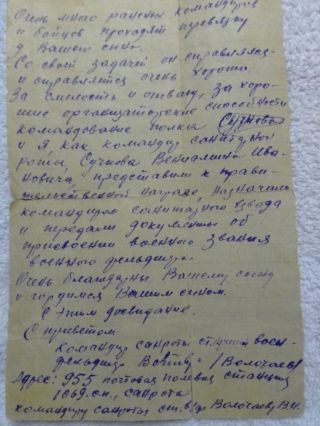 Очень много раненых командиров
и бойцов проходят перевязку
у Вашего сына.
Со своей задачей он справлялся
и справляется очень хорошо.
За смелость и отвагу, за хоро-
шие организаторские способности
командование полка
и я, как командир санитарной
роты, Сучкова Вениамина Ива-
новича представили к прави-
тельственной награде, назначили
командиром санитарного взвода
и передали документы об
присвоении военного звания
военного фельдшера.
Очень благодарны Вашему сыну
и гордимся Вашим сыном.
С этим досвидание.
С приветом
командир санроты старший воен-
фельдшер /Волочаев/
Адрес: 955 почтовая полевая станция
1069 с.п., санрота
командиру санроты ст. в/ф Волочаеву В.И.